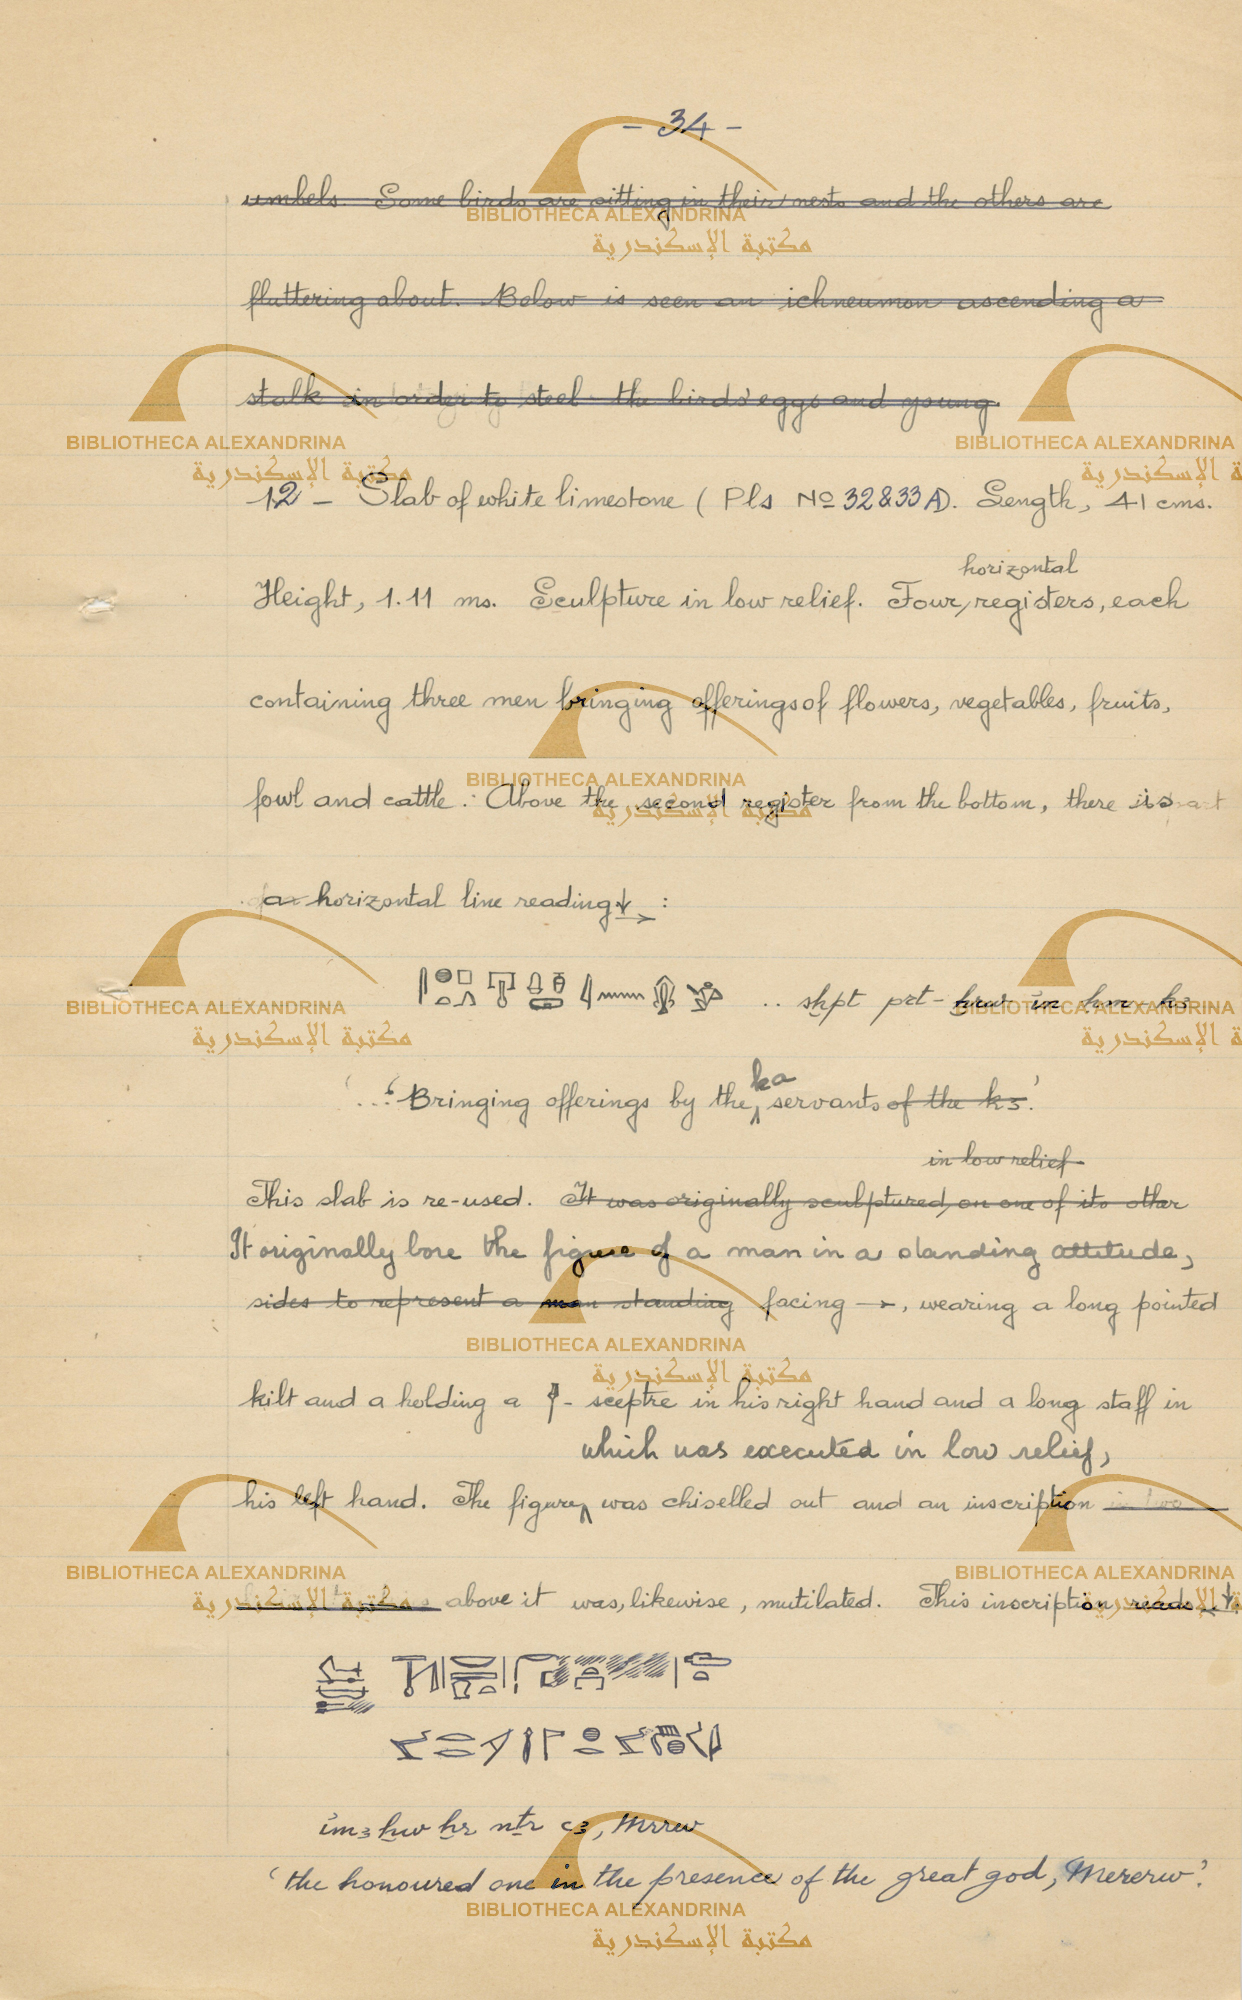 - 34 -
umbels. Some birds are sitting in their nests and the others are
fluttering about. Below is seen an ichneumon ascending a
stalk in order to steel the birds' eggs and young
12 - Slab of white limestone ( Pls Nº 32 & 33 A). Length, 41 cms.
horizontal
Height, 1.11 ms. Sculpture in low relief. Four, registers, each
containing three men bringing offerings of flowers, vegetables, fruits,
fowl and cattle. Above the second register from the bottom, there is
a horizontal line reading ↓→ :
.. sḫpt prt-ḫrw in ḥm-k3
ka
'...'Bringing offerings by the servants of the k3.'
in low relief
This slab is re-used. It was originally sculptured, on one of its other
It originally bore the figure of a man in a standing attitude,
sides to represent a man standing facing →, wearing a long pointed
kilt and a holding a - sceptre in his right hand and a long staff in
which was executed in low relief,
his left hand. The figure was chiselled out and an inscription in two
above it was, likewise, mutilated. This inscription reads ←↓:
im3ḫw ḫr nṯr c3, Mrrw
'the honoured one in the presence of the great god, Mererw'.
BIBLIOTHECA ALEXANDRINA
مكتبة الإسكندرية
BIBLIOTHECA ALEXANDRINA
مكتبة الإسكندرية
BIBLIOTHECA ALEXANDRINA
مكتبة الإسكندرية
BIBLIOTHECA ALEXANDRINA
مكتبة الإسكندرية
BIBLIOTHECA ALEXANDRINA
مكتبة الإسكندرية
BIBLIOTHECA ALEXANDRINA
مكتبة الإسكندرية
BIBLIOTHECA ALEXANDRINA
مكتبة الإسكندرية
BIBLIOTHECA ALEXANDRINA
مكتبة الإسكندرية
BIBLIOTHECA ALEXANDRINA
مكتبة الإسكندرية
BIBLIOTHECA ALEXANDRINA
مكتبة الإسكندرية